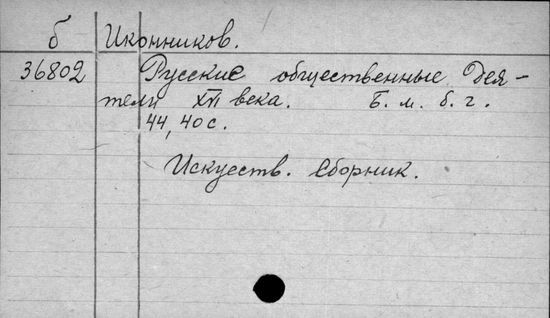 б Иконников.
36802 Русские общественные дея-
тели XVI века. Б. м. б. г.
44, 40 с.
Искусств. сборник.